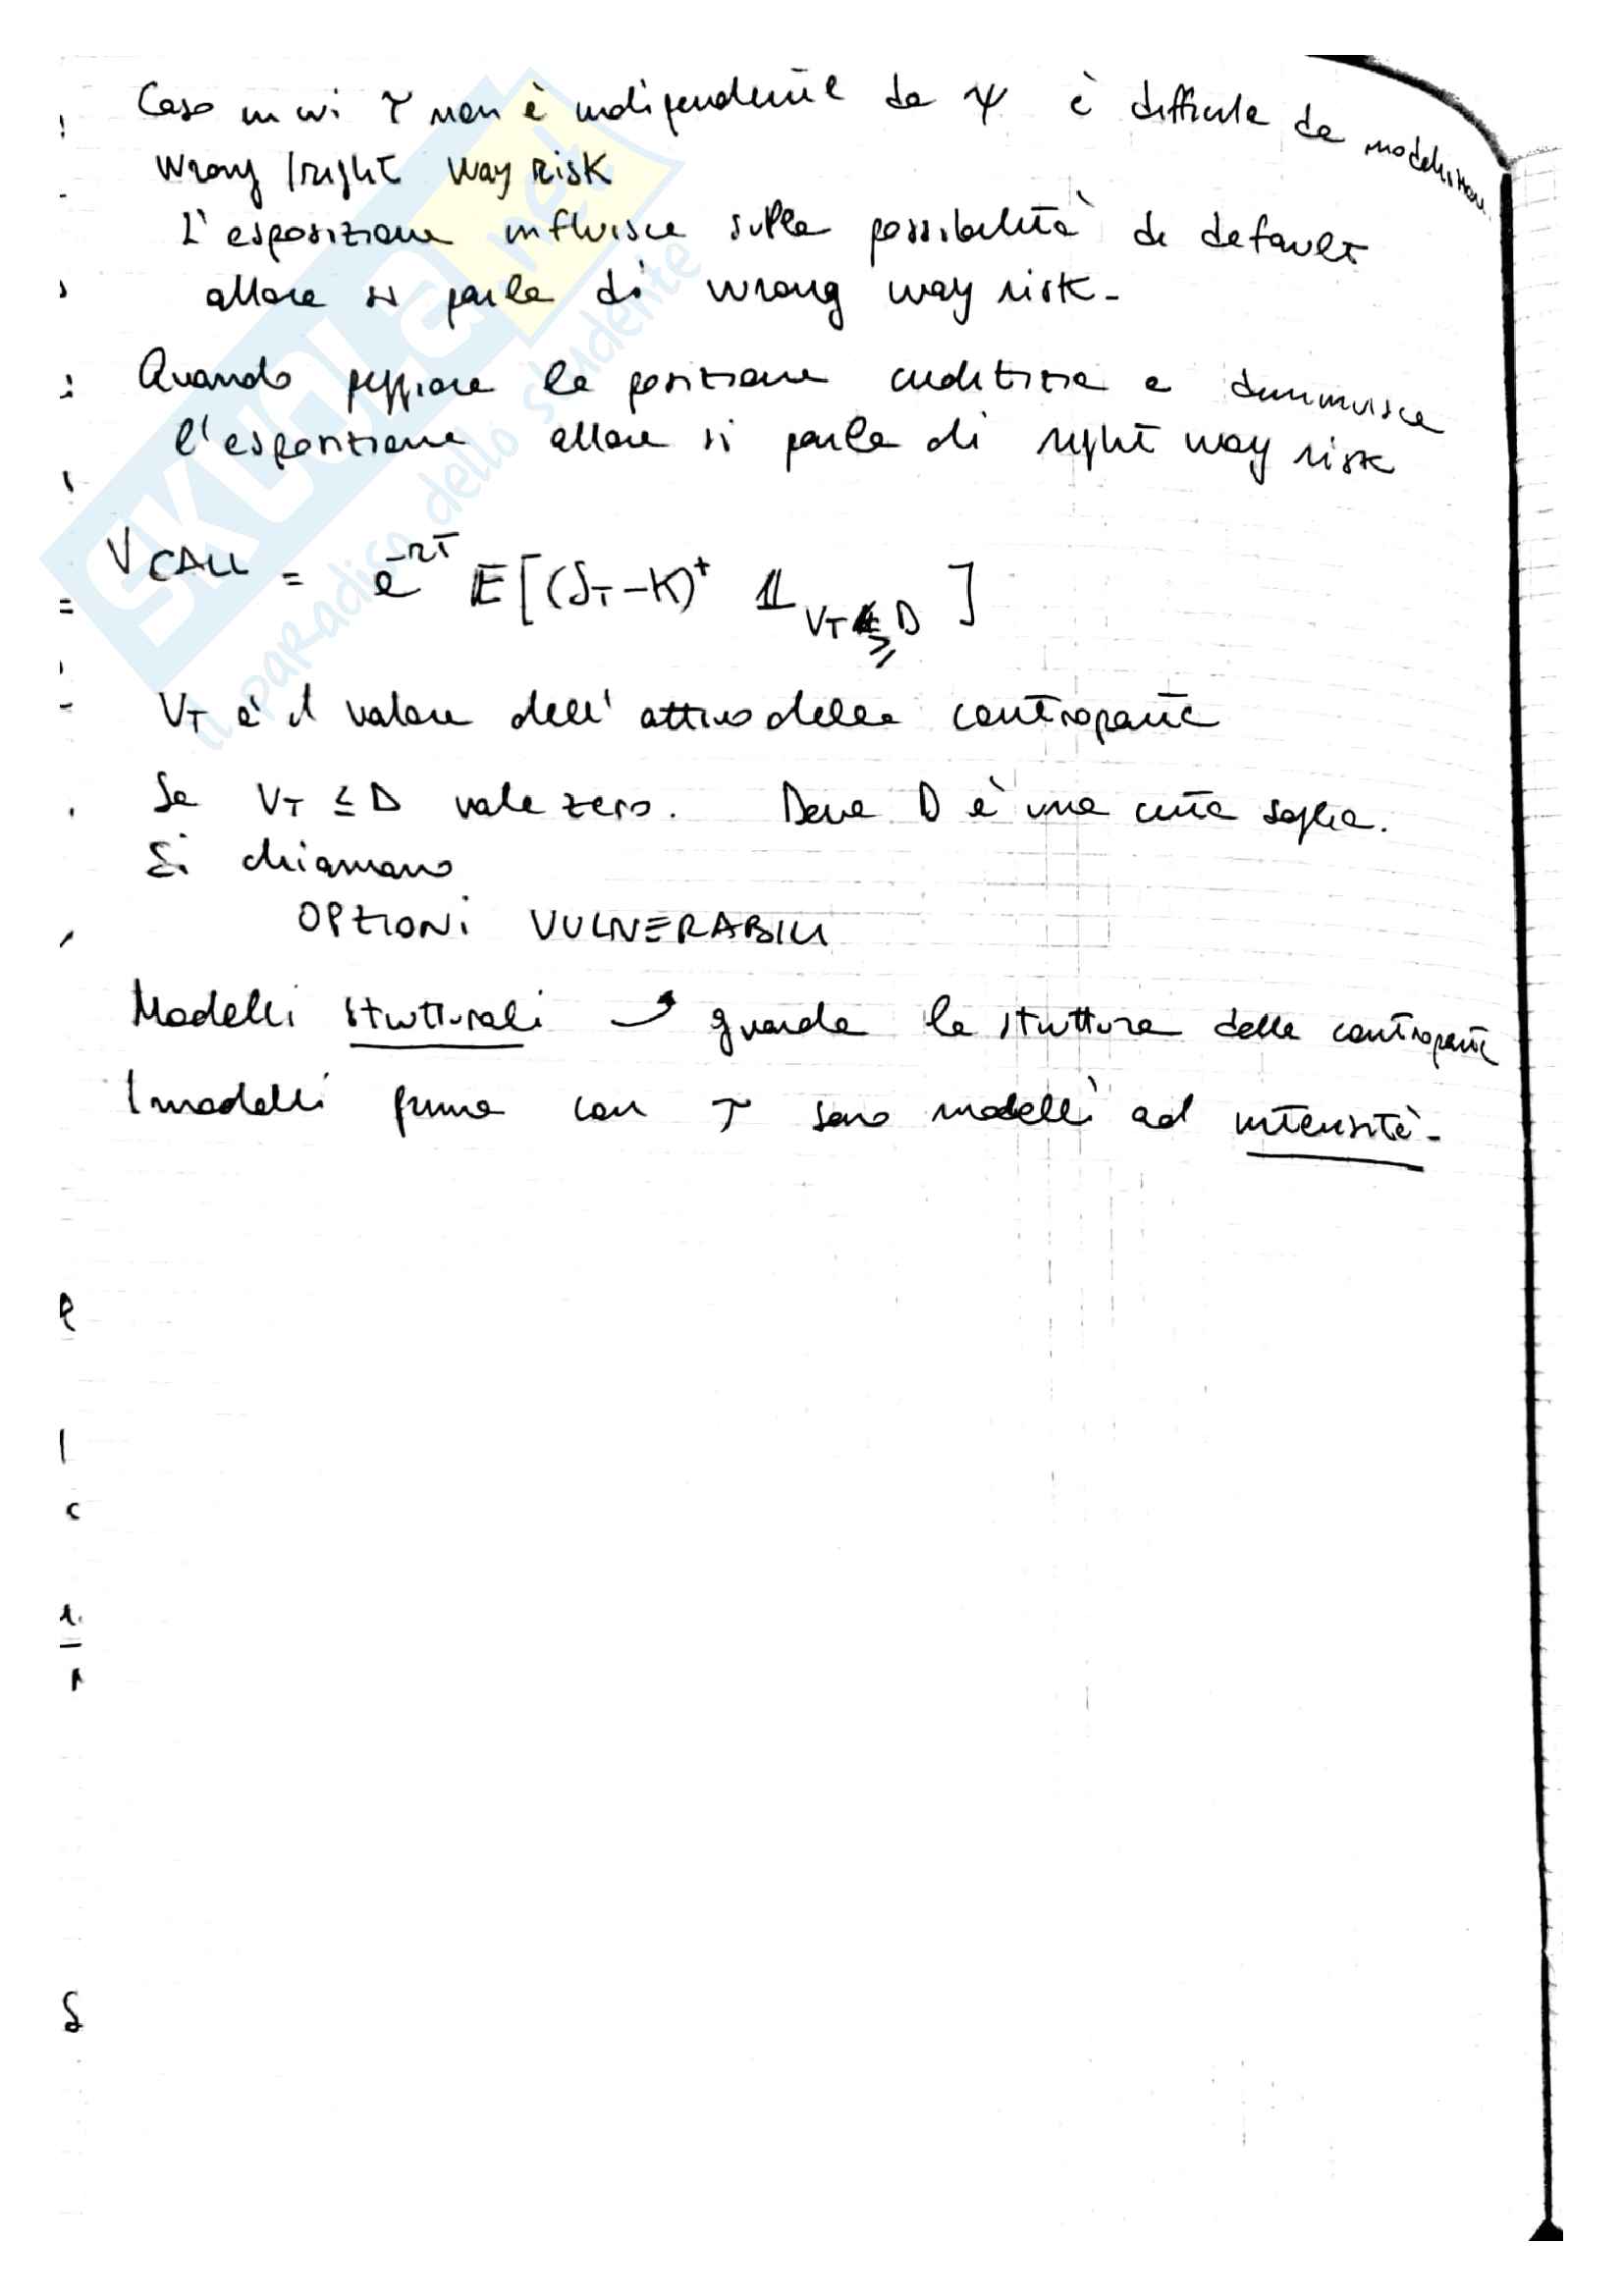 Caso in cui τ non è indipendente da ψ è difficile da modellizzare.
Wrong / right way risk
L'esposizione influisce sulla possibilità di default
allora si parla di wrong way risk.
Quando peggiora la posizione creditizia e diminuisce
l'esposizione allora si parla di right way risk
V_CALL = e^{-rT} E[(S_T - K)^+ 1_{V_T ≥ D}]
V_T è il valore dell'attivo della controparte
Se V_T ≤ D vale zero. Dove D è una certa soglia.
Si chiamano
OPZIONI VULNERABILI
Modelli strutturali → guarda la struttura della controparte
I modelli prima con τ sono modelli ad intensità.
SKUOLA.net
il paradiso dello studente